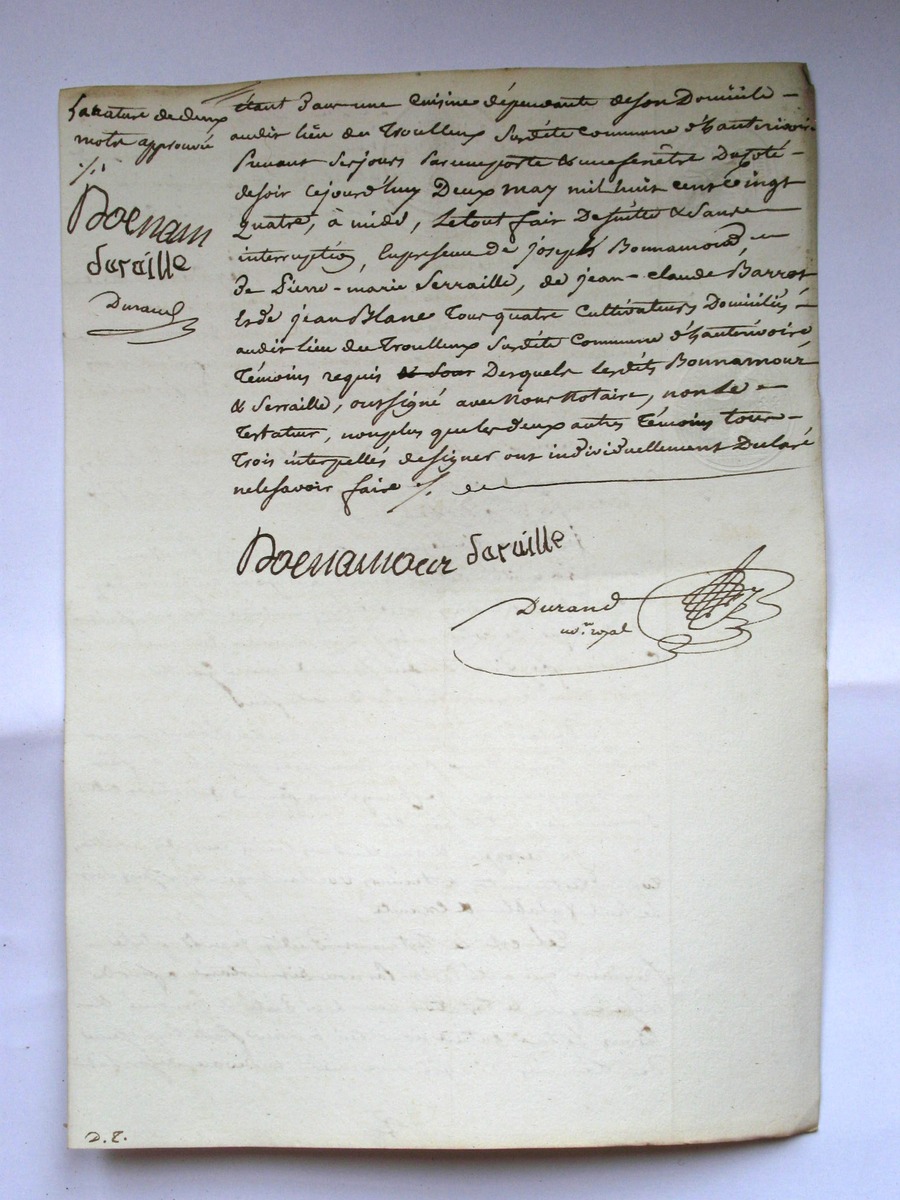 La rature de deux
mots approuvée
·/.
Boenam
Saraille
Durand
étant dans une Cuisine dépendante de son Domicile –
audit lieu du Troulleux Susdite Commune d'hauterivoire
Prenant Ses jours Par une porte & une fenêtre Du Coté –
de soir Cejourd'huy Deux may mil huit cent vingt
Quatre, à midi, Le tout fait De Suite & Sans
interruption, En présence de joseph Bonnamour, –
De Pierre-marie Serraille, de jean-claude Barret
Et de jean Blanc Tous quatre Cultivateurs Domiciliés –
audit lieu du Troulleux Susdite Commune d'hauterivoire
Témoins requis & Sous Desquels Lesdits Bonnamour
& Serraille, ont signé avec Nous Notaire, non Le –
Testateur, non plus que les deux autres Témoins tous –
Trois interpellés de signer ont individuellement Declaré
ne le savoir faire ·/.
Boenamour Saraille
Durand
no.re royal
D. T.